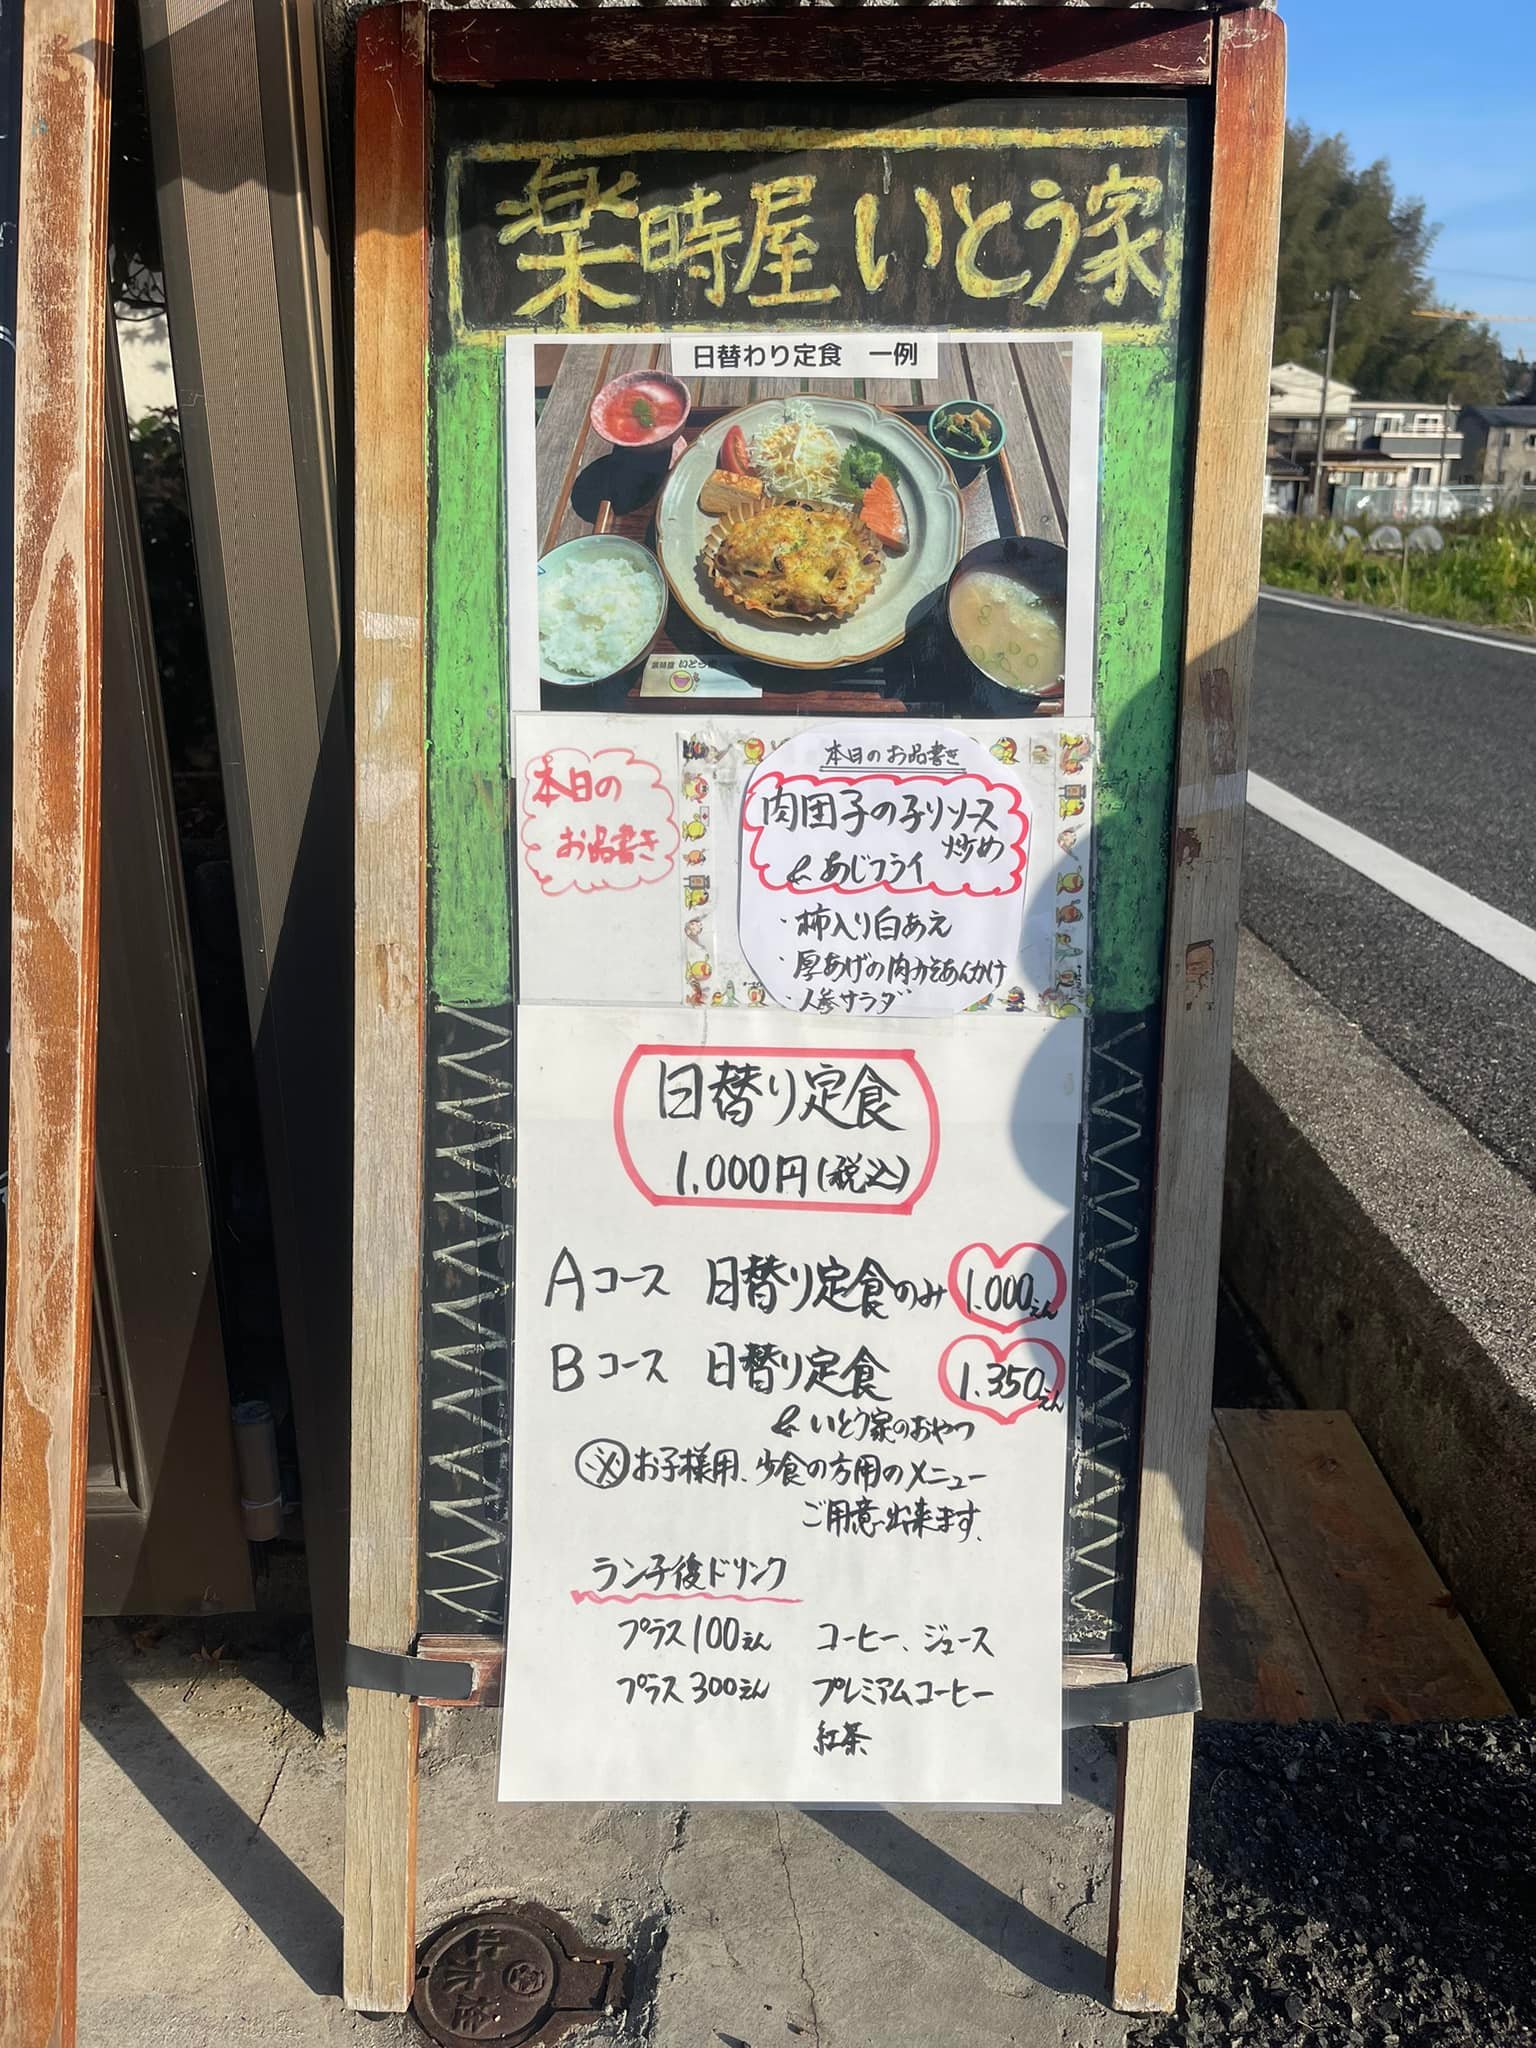 楽時屋 いとう家
日替わり定食 一例
楽時屋 いとう家
本日の
お品書き
本日のお品書き
肉団子のチリソース
炒め
& あじフライ
・柿入り白あえ
・厚あげの肉みそあんかけ
・人参サラダ
日替り定食
1.000円(税込)
Aコース 日替り定食のみ 1.000えん
Bコース 日替り定食 1.350えん
& いとう家のおやつ
※お子様用、少食の方用のメニュー
ご用意出来ます。
ランチ後ドリンク
プラス100えん コーヒー、ジュース
プラス300えん プレミアムコーヒー
紅茶